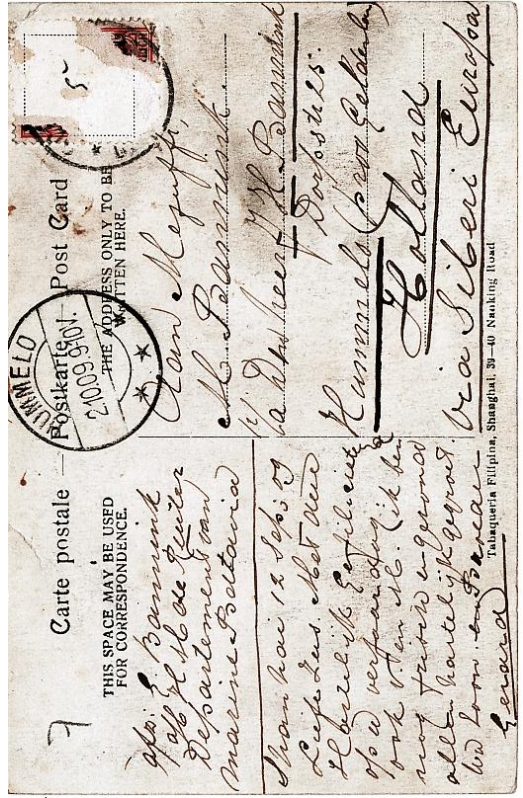 Carte postale — Postkarte — Post Card
THIS SPACE MAY BE USED
FOR CORRESPONDENCE.
THE ADDRESS ONLY TO BE
WRITTEN HERE.
7
5
UMMELO
2.10.09.9-10V.
afz. G. Bannink
a/b H M de Ruiter
Departement van
marine Batavia
Shanhai 12 Sept 09
Lieve Zus Met deze
Hartelijk
op uw verjaardag ik ben
ook
nog frisch en gezond
allen hartelijk gegroet
Uw Broer
Gerard
Aan Mejuffr,
M Bannink.
Bannink
Dorpstr 25.
Hummelo (prov Gelderland)
Holland
via Siberi Europa
Tabaqueria Filipina, Shanghai, 39—40 Nanking Road